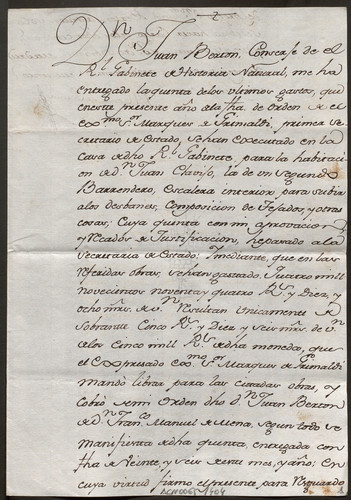 Dⁿ Juan Bexton, Conserge de el
Rˡ Gabinete de Historia Natural, me ha
entregado la quenta de los ultimos gastos, que
en este presente año de la fha. de Orden de el
Exᵐᵒ Sʳ Marques de Grimaldi, primer Se
cretario de Estado, se han executado en la
Casa de dho Rˡ Gabinete, para la habitacion
de Dⁿ Juan Clavijo, la de un segundo
Barrendero, Escalera interior para subir
a los desbanes, Composicion de Tejados, y otras
cosas; Cuya quenta con mi aprovacion
y Recados de Justificacion, he pasado a la
Secretaria de Estado: Y mediante, que en las
referidas obras, se han gastado Quatro mill
novecientos noventa y quatro Rˢ y Diez, y
ocho mrs. de vⁿ Resultan Unicamente de
Sobrante Cinco Rˢ y Diez y seis mrs. de vⁿ
de los Cinco mill Rˢ de dha moneda, que
el Expresado Exᵐᵒ Sʳ Marques de Grimaldi
mando librar para las citadas obras, y
Cobró de mi Orden dho Dⁿ Juan Bexton
de Dⁿ Franᶜᵒ Manuel de Mena, segun todo se
manifiesta de dha quenta entregada con
fha de Veinte, y seis de este mes, y año; En
cuya virtud firmo el presente para Resguardo